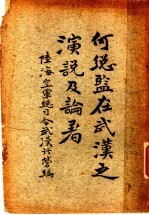 何总監在武漢之
演説及論著
陸海空軍總司令武漢行營編